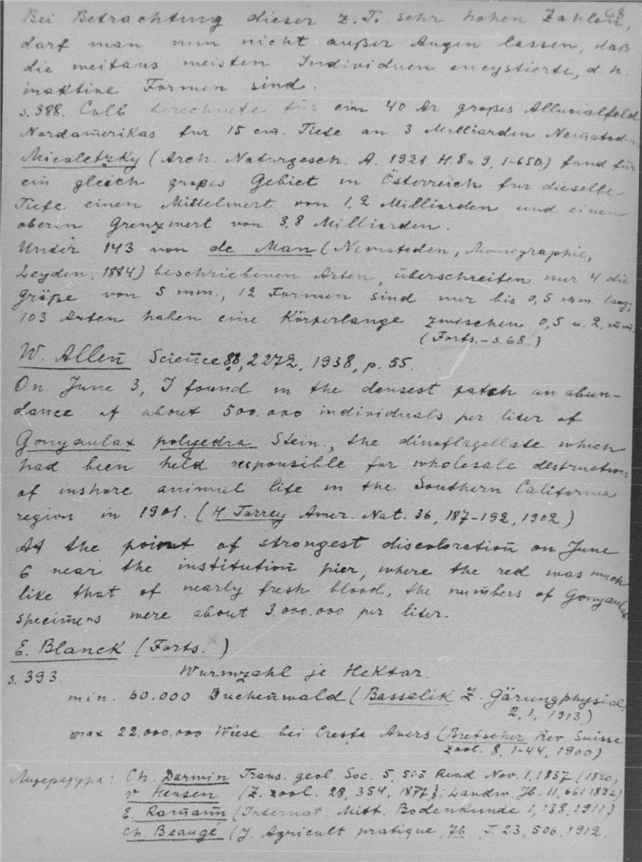 Bei Betrachtung dieser z.T. sehr hohen Zahlen,
darf man nun nicht außer Augen lassen, daß
die weitaus meisten Individuen encystierte, d.h.
inaktive Formen sind.
s.388. Cobb berechnete für ein 40 Ar großes Alluvialfeld
Nordamerikas für 15 cm. Tiefe an 3 Milliarden Nematoden
Micoletzky (Arch. Naturgesch. A. 1921 H.8 u 9, 1-650) fand für
ein gleich großes Gebiet in Österreich für dieselbe
Tiefe einen Mittelwert von 1,2 Milliarden und einen
oberen Grenzwert von 3,8 Milliarden.
Unter 143 von de Man (Nematoden, Monographie,
Leyden, 1884) beschriebenen Arten, überschreiten nur 4 die
größe von 5 mm., 12 Formen sind nur bis 0,5 mm lang,
103 Arten haben eine Körperlange zwischen 0,5 u. 2, mm
(Forts. – s.68.)
W. Allen Science 88, 2272, 1938, p. 55.
On June 3, I found in the densest patch an abun-
dance of about 500.000 individuals per liter of
Gonyaulax polyedra Stein., the dinoflagellate which
had been held responsible for wholesale destruction
of inshore animal life in the Southern California
region in 1901. (H Torrey Amer. Nat. 36, 187-192, 1902)
At the point of strongest discoloration on June
6 near the institution pier, where the red was much
like that of nearly fresh blood, the numbers of Gonyaulax
specimens were about 3.000.000 per liter.
E. Blanck (Forts.)
s. 393. Wurmzahl je Hektar.
min. 60.000 Buchenwald (Bassalik Z. Gärungphysiol.
2, 1, 1913)
max 22.000.000 Wiese bei Cresta Avers (Bretscher Rev Suisse
zool. 8, 1-44, 1900)
Литература: Ch. Darwin Trans. geol. Soc. 5, 505 Read Nov. 1, 1837 (1840)
v Hensen (Z. zool. 28, 354, 1877); Landw. Jb. 11, 661 1882)
E. Ramann (Internat Mitt. Bodenkunde 1, 138, 1911)
Ch. Beaugé (J. Agricult pratique, T. 23, 506, 1912.